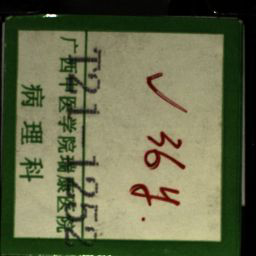 广西中医学院瑞康医院
病理科
T21 1252
✓ 36 y.